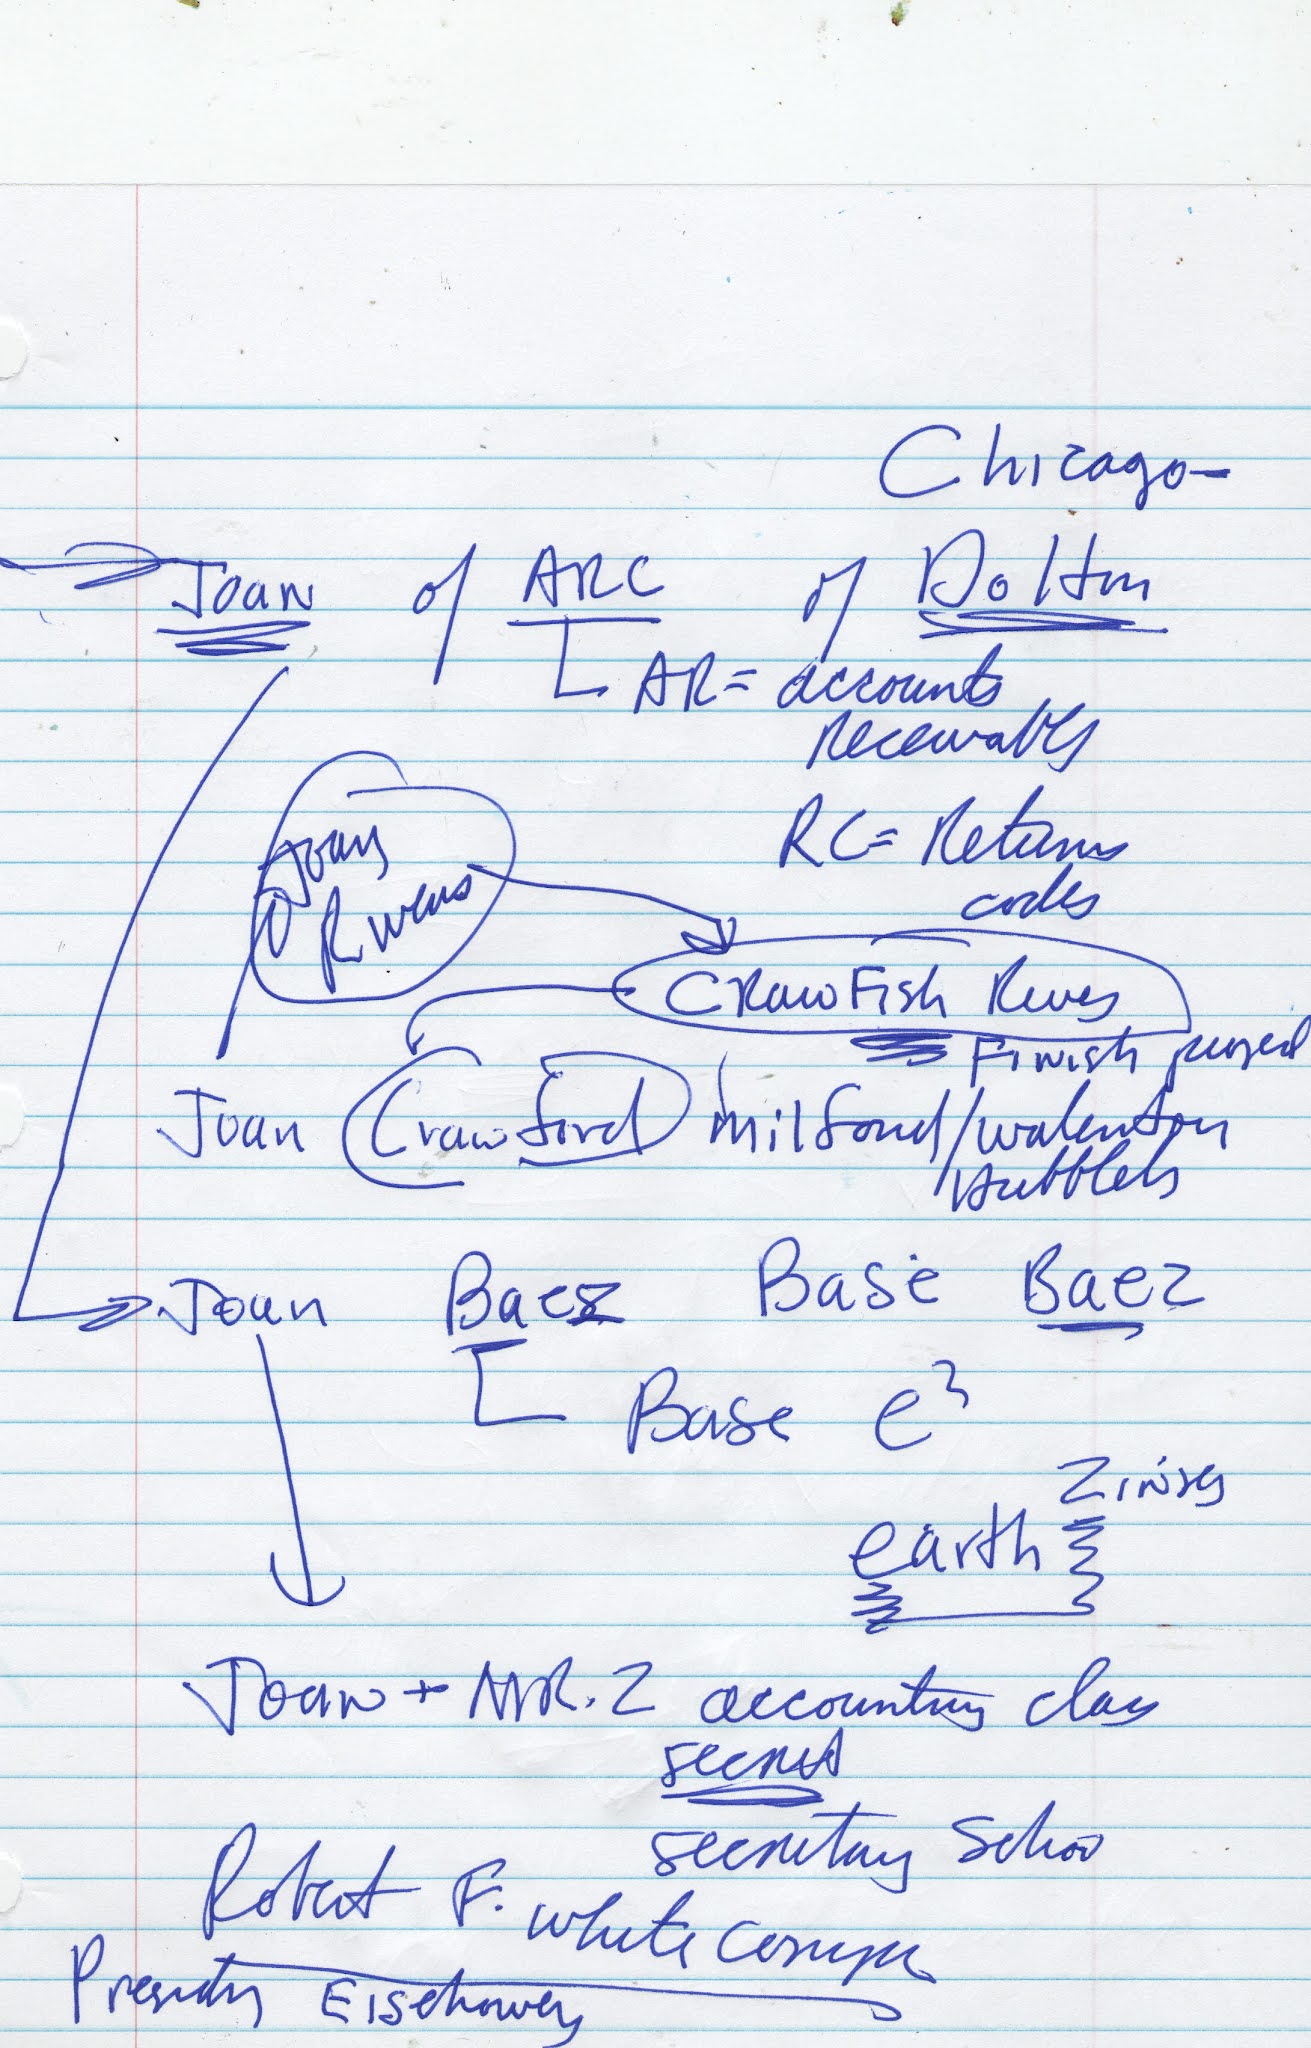 Chicago-
Joan of ARC of Dolton
AR= accounts
receivables
RC= Returns
codes
Joan
Rivers
CRawFish River
Finish
Joan Crawford milford/
Joan Baez Base Baez
Base e³
Zinsey
earth
Joan + MR. Z accounting class
secret
secretary School
Robert F. white
Eisenhower